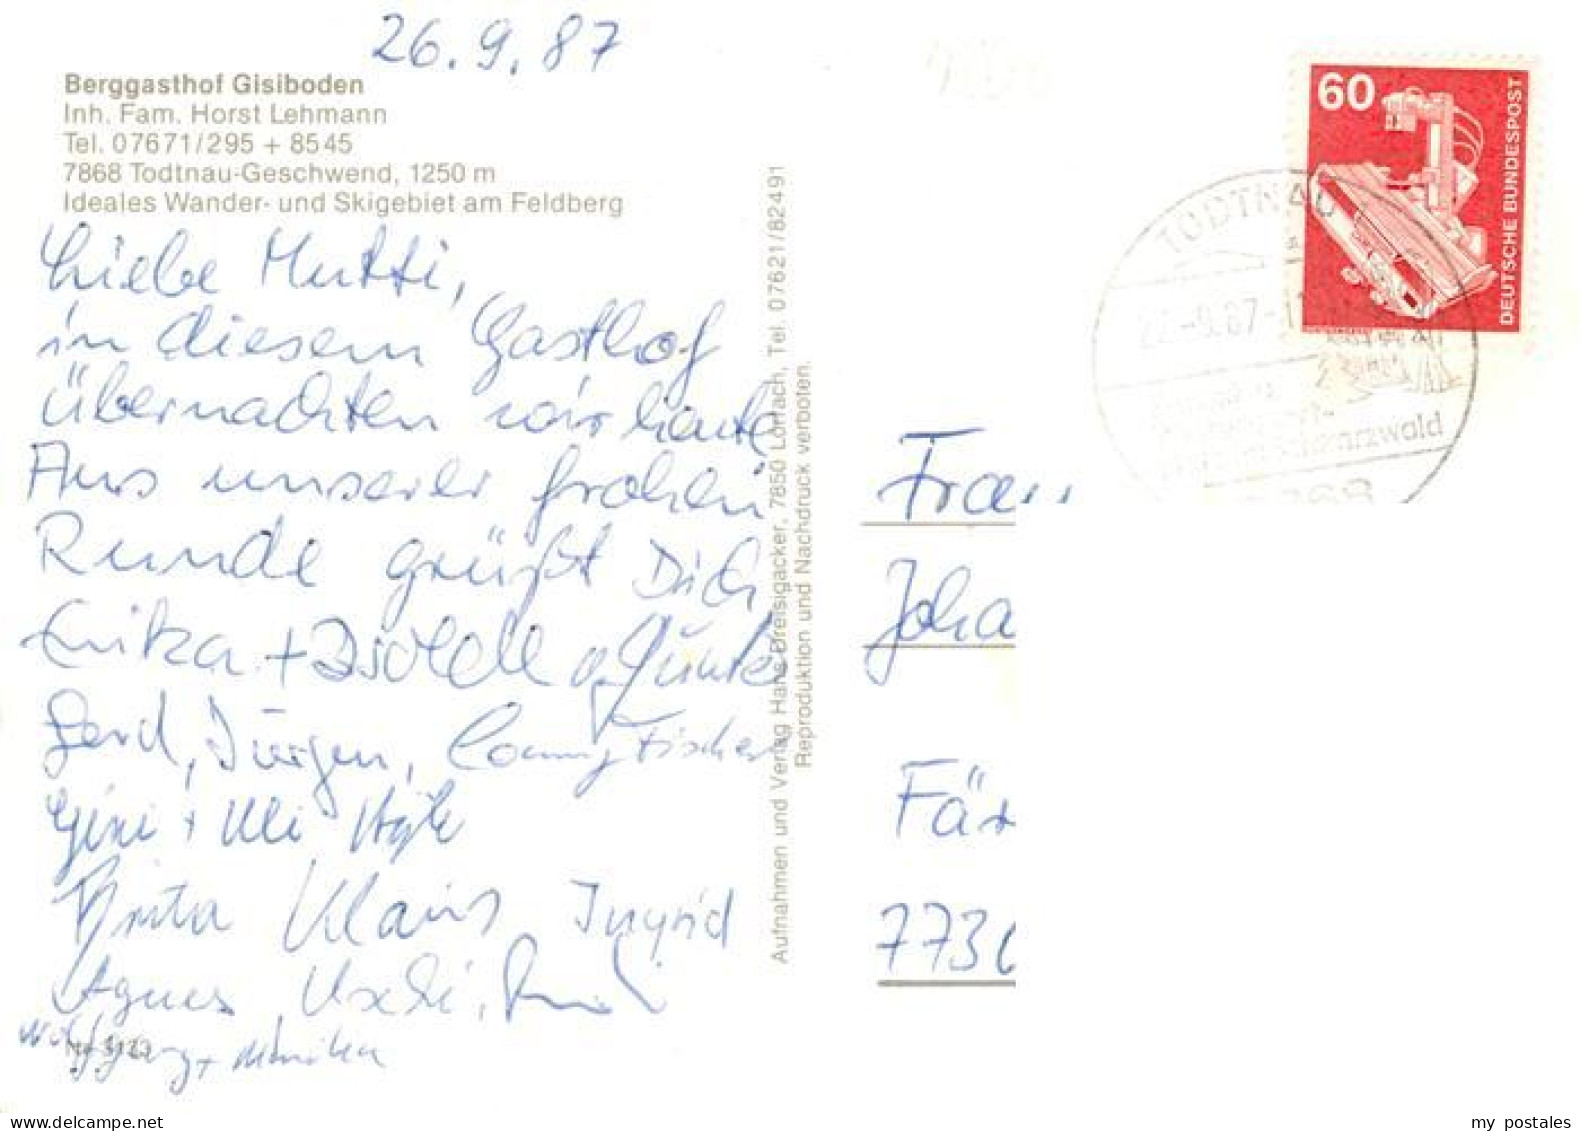 26.9.87
Berggasthof Gisiboden
Inh. Fam. Horst Lehmann
Tel. 07671/295 + 8545
7868 Todtnau-Geschwend, 1250 m
Ideales Wander- und Skigebiet am Feldberg
Liebe Mutti,
in diesem Gasthof
übernachten wir heute
Aus unserer frohen
Runde grüßt Dich
Erika + Isolde
Gerd, Jürgen, Conny Fischer
+ Uli
Brita Klaus Ingrid
Agnes Uschi,
Wolfgang + Monika
Nr. 3123
Aufnahmen und Verlag Hans Dreisigacker, 7850 Lörrach, Tel. 07621/82491
Reproduktion und Nachdruck verboten.
60
DEUTSCHE BUNDESPOST
TODTNAU
Frau
Joha
Fär
773
my postales